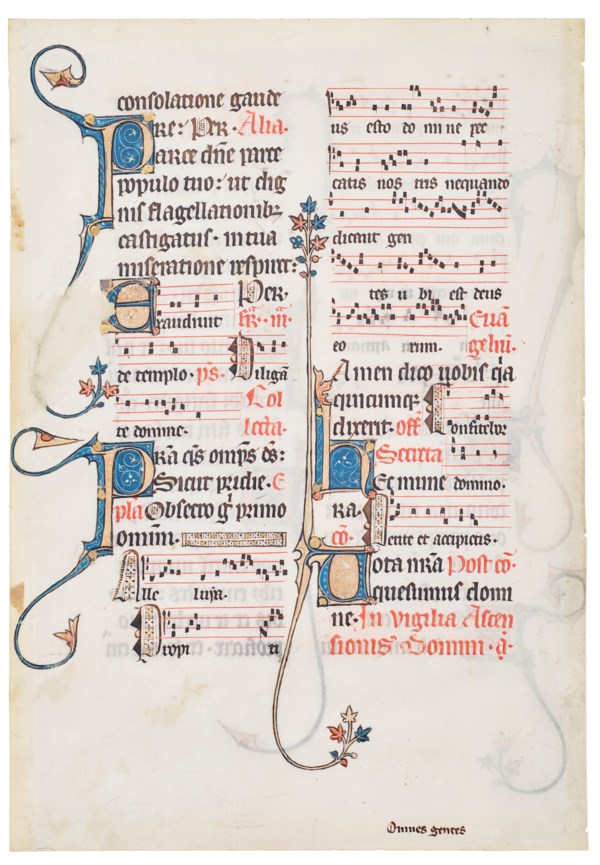 consolatione gaude
re: Per. Alia.
Parce dñe parce
populo tuo: ut dig
nis flagellationibȝ
castigatus. in tua
miseratione respiret:
Per.
Exaudiuit fr̃. iii.
de templo. ps. Diligã
te domine. Col
lecta.
Pr̃a q̃s om̃ps d̃s:
Sicut pridie. E
pla Obsecro gͥ primo
omniũ.
Alle luya.
Propi ti
us esto do mi ne pec
catis nos tris nequando
dicant gen
tes u bi est deus
eo rum. Euã
geliũ.
Amen dico uobis q̃a
quicumqꝫ
dixerit. off̃. Confitebor
Secreta
Hec mune domino.
Ora.
cõ. Petite et accipietis.
Uota nr̃a Post cõ.
quesumus domi
ne. In vigilia Ascen
sionis Domini. q̃.
Omnes gentes